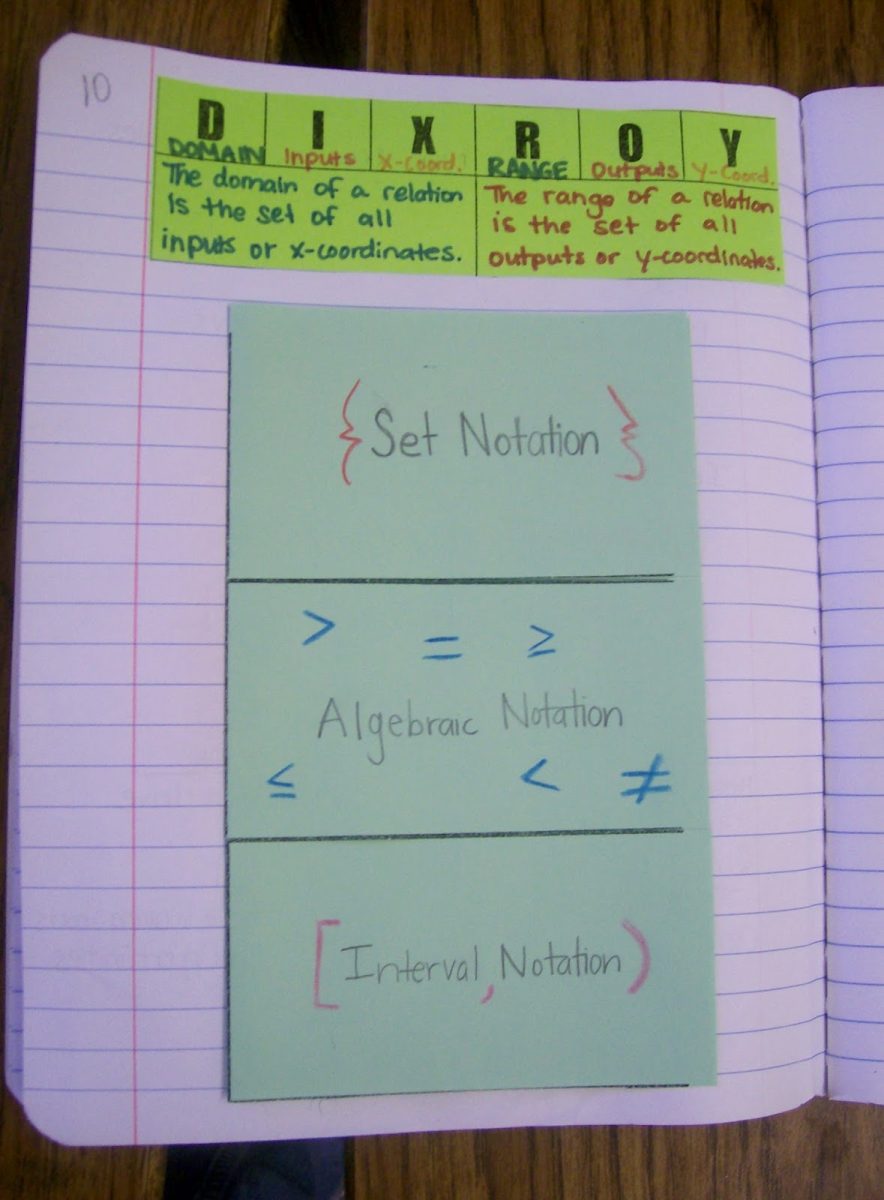 10
D I X R O Y
DOMAIN Inputs X-Coord. RANGE Outputs Y-Coord.
The domain of a relation
is the set of all
inputs or x-coordinates.
The range of a relation
is the set of all
outputs or y-coordinates.
{Set Notation}
> = ≥
Algebraic Notation
≤ < ≠
[Interval, Notation)